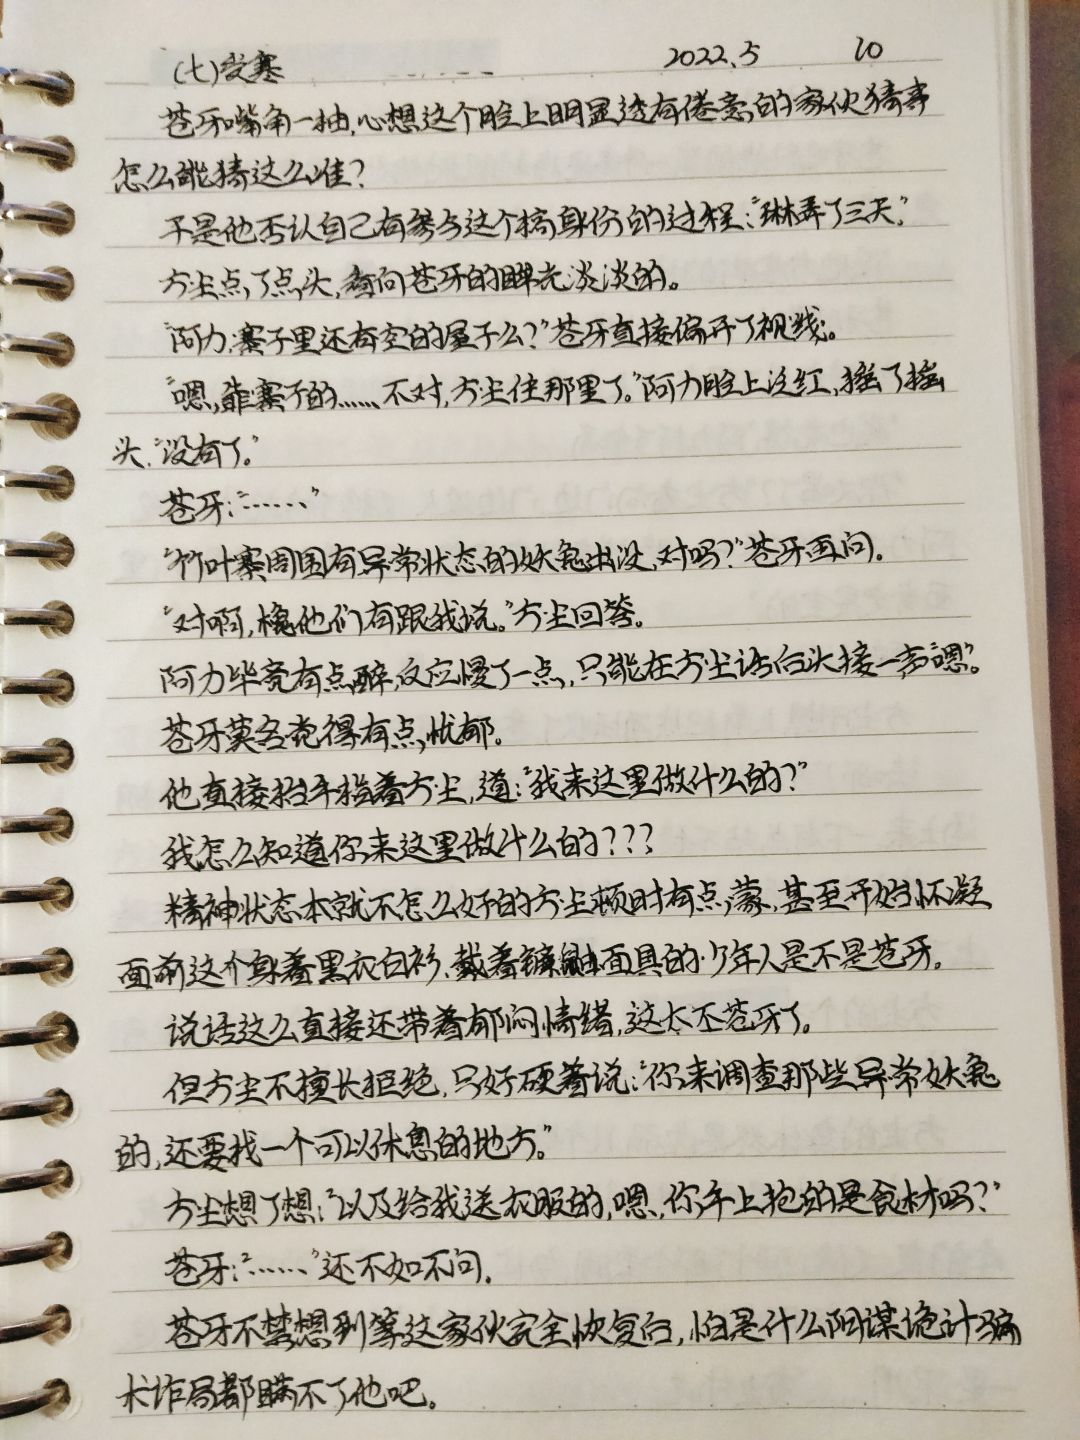 (七)受寒 2022.5 10
苍牙嘴角一抽,心想这个脸上明显透有倦意的家伙猜事
怎么能猜这么准?
于是他否认自己有参与这个搞身份的过程:“琳弄了三天。”
方尘点了点头,看向苍牙的眸光淡淡的。
“阿力,寨子里还有空的屋子么?”苍牙直接偏开了视线。
“嗯,靠寨子的……不对,方尘住那里了。”阿力脸上泛红,摇了摇
头,“没有了。”
苍牙:“……”
“竹叶寨周围有异常状态的妖兔出没,对吗?”苍牙再问。
“对啊,槐他们有跟我说。”方尘回答。
阿力毕竟有点醉,反应慢了一点,只能在方尘话后头接一声“嗯”。
苍牙莫名觉得有点忧郁。
他直接抬手指着方尘,道:“我来这里做什么的?”
我怎么知道你来这里做什么的???
精神状态本就不怎么好的方尘顿时有点蒙,甚至开始怀凝
面前这个身着黑衣白衫、戴着镰鼬面具的少年人是不是苍牙。
说话这么直接还带着郁闷情绪,这太不苍牙了。
但方尘不擅长拒绝,只好硬着说:“你来调查那些异常妖兔
的,还要找一个可以休息的地方。”
方尘想了想:“以及给我送衣服的,嗯,你手上抱的是食材吗?”
苍牙:“……”还不如不问。
苍牙不禁想到等这家伙完全恢复后,怕是什么阴谋诡计骗
术诈局都瞒不了他吧。